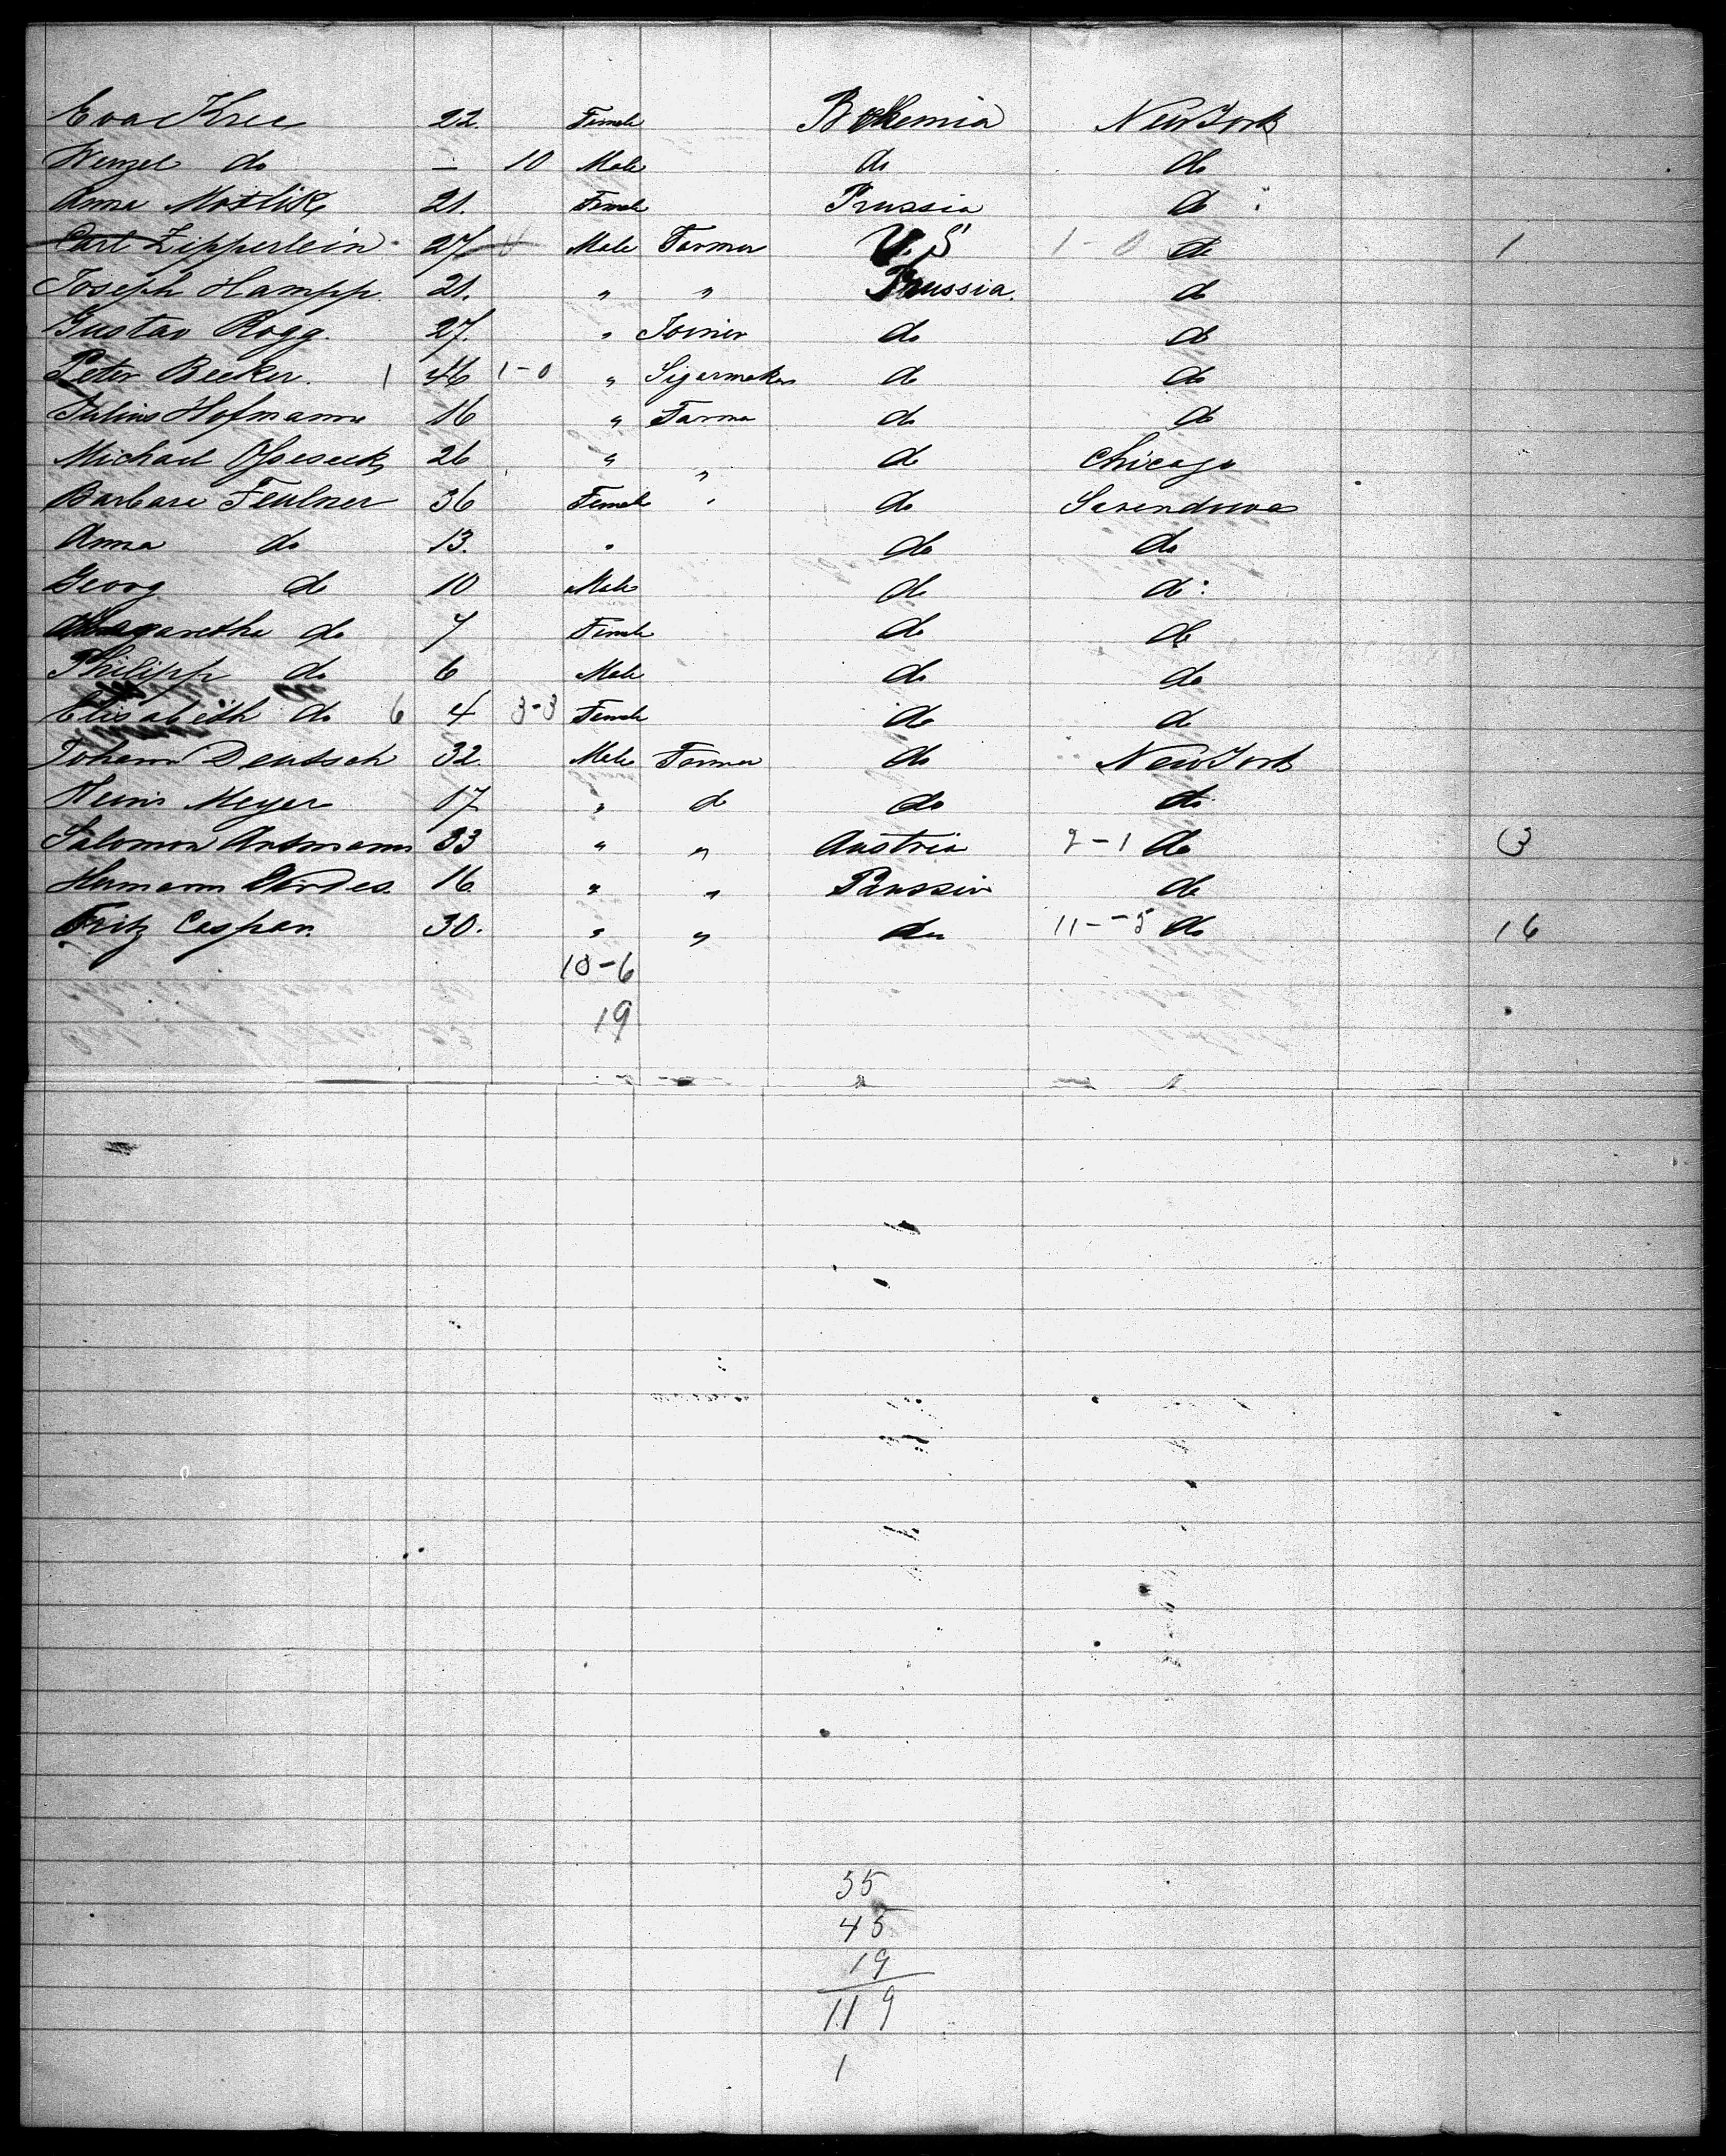 Eva Kree 22. Female Bohemia New York
Wenzel do — 10 Male do do
Anna 21. Female Prussia do
Carl Zipperlein 27 Male Farmer U. S 1-0 do 1
Joseph Hampp. 21. " " Prussia. do
Gustav Rogg. 27. " Joiner do do
Peter Becker. 1 46 1-0 " Sigarmaker do do
Julius Hofmann 16 " Farmer do do
Michael 26 " " do Chicago
Barbara Feulner 36 Female " do
Anna do 13. " do do
Georg do 10 Male do do
Margaretha do 7 Female do do
Philipp do 6 Male do do
Elisabeth do 6 4 3-3 Female do do
Johann Deutsch 32. Male Farmer do New York
Heinr Meyer 17 " do do do
Salomon 33 " " Austria 2-1 do 3
Hermann 16 " " Prussia do
Fritz Caspar. 30. " " do 11-5 do 16
10-6
19
55
45
19
119
1